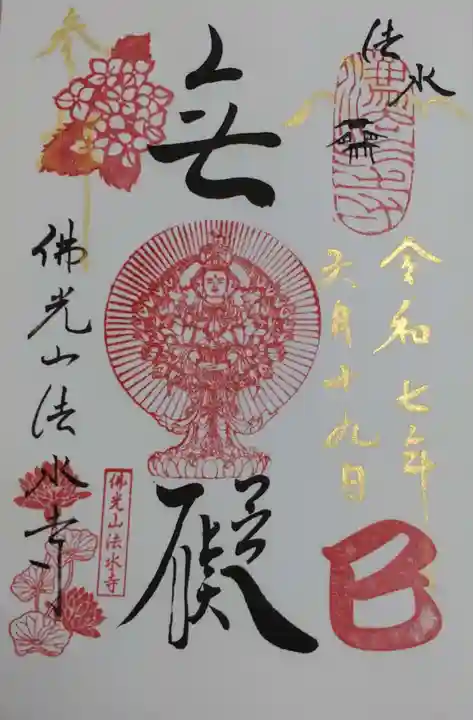 法水
令和七年
六月十九日
巳
無
礙
佛光山法水寺
佛光山法水寺